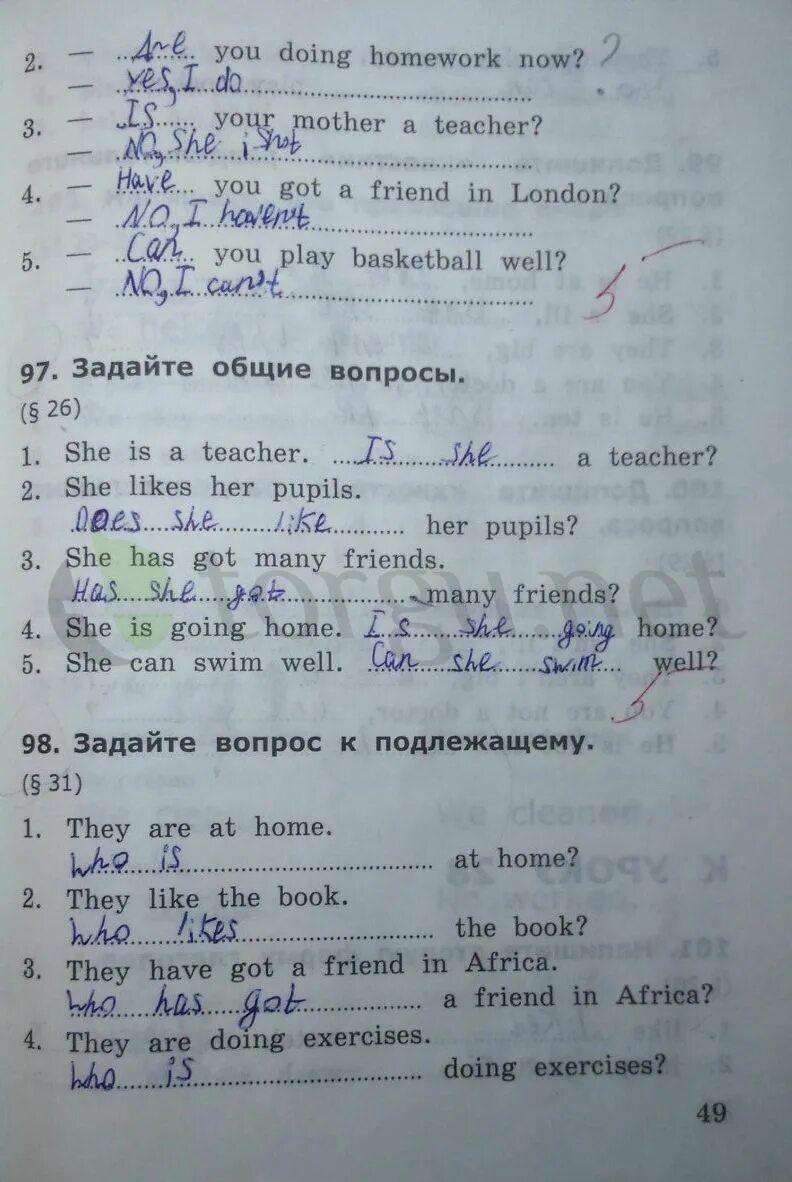 2. — Are you doing homework now? 2
— yes, I do
3. — Is your mother a teacher?
— NO, She isnot
4. — Have you got a friend in London?
— NO, I haven't
5. — Can you play basketball well?
— NO, I can't
5
97. Задайте общие вопросы.
(§ 26)
1. She is a teacher. Is she a teacher?
2. She likes her pupils.
Does she like her pupils?
3. She has got many friends.
Has she got many friends?
torgu.net
4. She is going home. Is she going home?
5. She can swim well. Can she swim well?
5
98. Задайте вопрос к подлежащему.
(§ 31)
1. They are at home.
who is at home?
2. They like the book.
who likes the book?
3. They have got a friend in Africa.
who has got a friend in Africa?
4. They are doing exercises.
who is doing exercises?
49